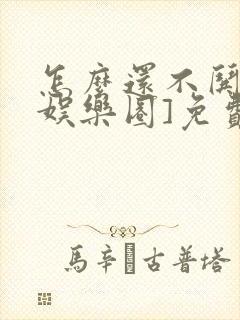 怎麼還不開
娛樂圈]免費
馬辛 古普塔